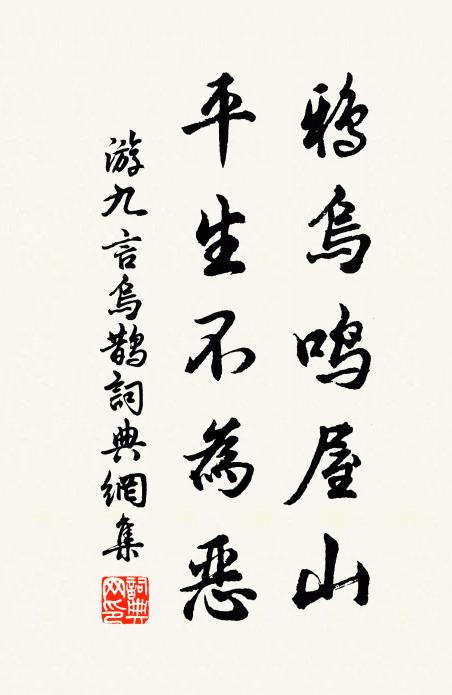 鴉烏鳴屋山
平生不為惡
游九言烏鵲詞典網集
詞典网印